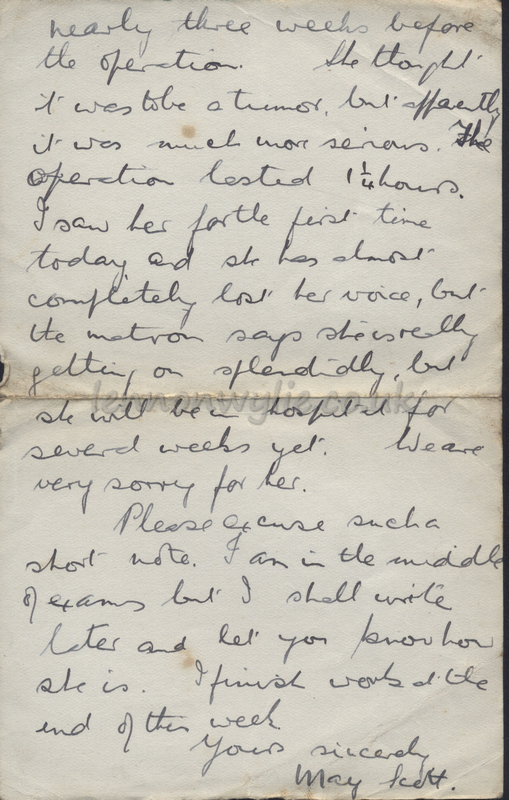 nearly three weeks before
the operation. She thought
it was to be a tumor, but apparently
it was much more serious. The
operation lasted 1¼ hours.
I saw her for the first time
today and she has almost
completely lost her voice, but
the matron says she is really
getting on splendidly, but
lennonwylie.co.uk
she will be in hospital for
several weeks yet. We are
very sorry for her.
Please excuse such a
short note. I am in the middle
of exams but I shall write
later and let you know how
she is. I finish work at the
end of this week
Yours sincerely
May Scott.